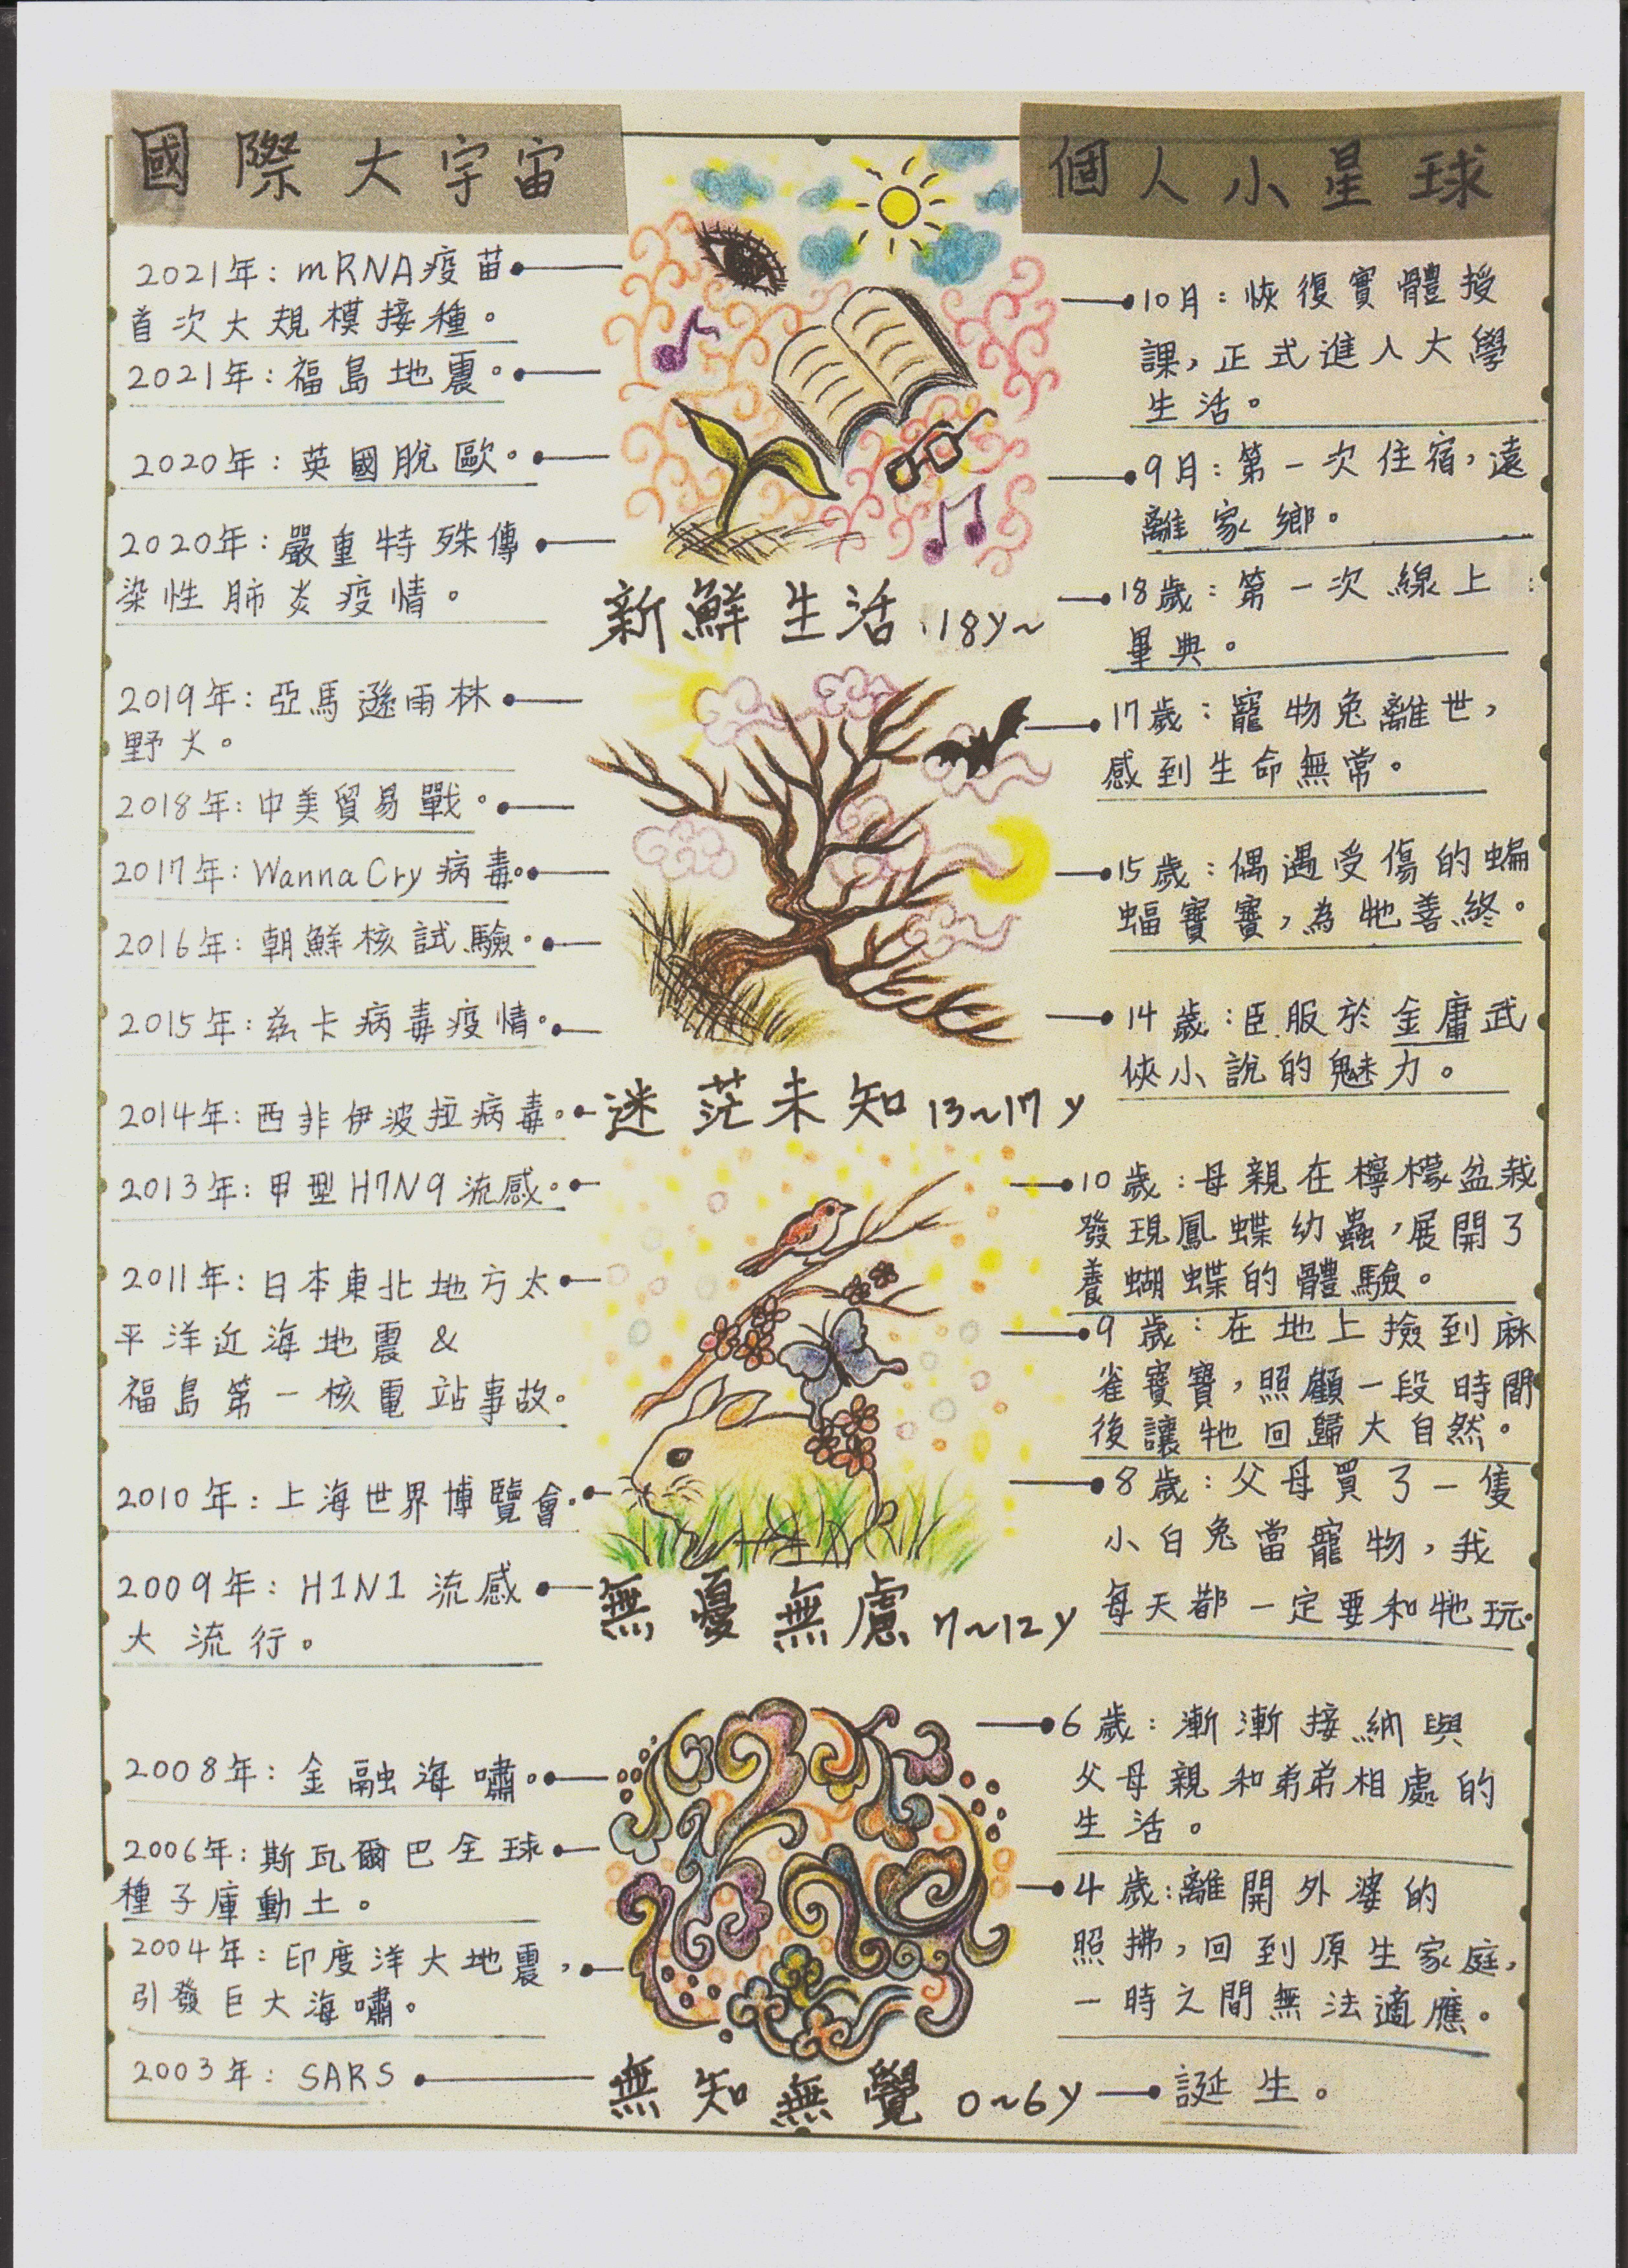 國際大宇宙
2021年：mRNA疫苗
首次大規模接種。
2021年：福島地震。
2020年：英國脫歐。
2020年：嚴重特殊傳
染性肺炎疫情。
2019年：亞馬遜雨林
野火。
2018年：中美貿易戰。
2017年：WannaCry病毒。
2016年：朝鮮核試驗。
2015年：茲卡病毒疫情。
2014年：西非伊波拉病毒。
2013年：甲型H7N9流感。
2011年：日本東北地方太
平洋近海地震&
福島第一核電站事故。
2010年：上海世界博覽會。
2009年：H1N1流感
大流行。
2008年：金融海嘯。
2006年：斯瓦爾巴全球
種子庫動土。
2004年：印度洋大地震，
引發巨大海嘯。
2003年：SARS
新鮮生活 18y~
迷茫未知 13~17y
無憂無慮 7~12y
無知無覺 0~6y
個人小星球
10月：恢復實體授
課，正式進入大學
生活。
9月：第一次住宿，遠
離家鄉。
18歲：第一次線上
畢典。
17歲：寵物兔離世，
感到生命無常。
15歲：偶遇受傷的蝙
蝠寶寶，為牠善終。
14歲：臣服於金庸武
俠小說的魅力。
10歲：母親在檸檬盆栽
發現鳳蝶幼蟲，展開了
養蝴蝶的體驗。
9歲：在地上撿到麻
雀寶寶，照顧一段時間
後讓牠回歸大自然。
8歲：父母買了一隻
小白兔當寵物，我
每天都一定要和牠玩。
6歲：漸漸接納與
父母親和弟弟相處的
生活。
4歲：離開外婆的
照拂，回到原生家庭，
一時之間無法適應。
誕生。